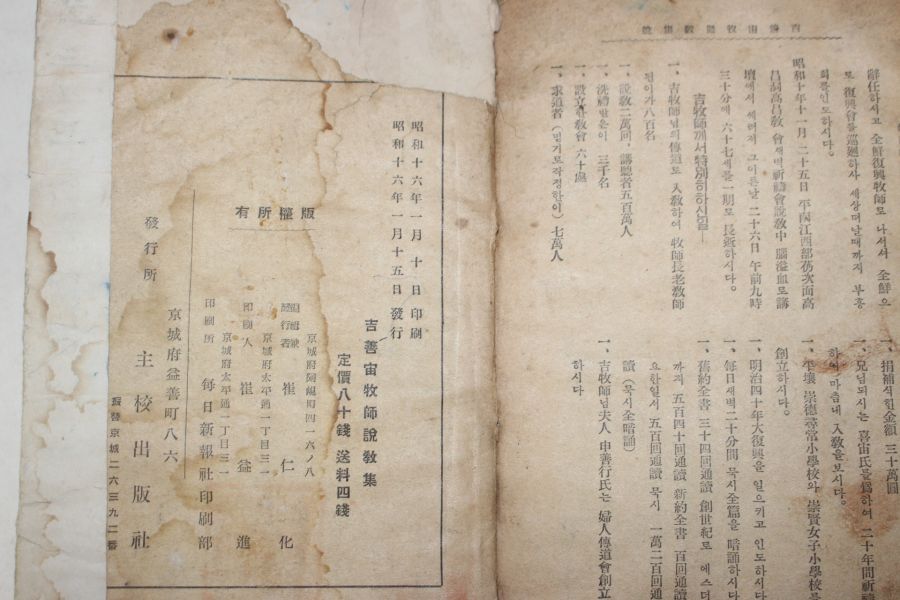 吉善宙牧師說敎集
辭任하시고 全鮮復興牧師로 나서사 全鮮으
로 復興會를 巡廻하사 세상떠날때까지 부흥
회를인도하시다。
昭和十年十一月二十五日 平南江西郡 次面高
昌洞高昌敎會새벽祈禱會說敎中 腦溢血로講
壇에서 셔 그이튼날 二十六日 午前九時
三十分에 六十七세를一期로 長逝하시다。
吉牧師께서特別히하신일
一、吉牧師님의傳道로 入敎하여 牧師長老敎師
된이가八百名
一、說敎二萬回、講聽者五百萬人
一、洗禮받은이 三千名
一、設立한敎會六十處
一、求道者(믿기로작정한이)七萬人
一、捐補시힌金額 三十萬圓
一、兄님되시는 喜宙氏를爲하여 二十年間祈禱
하여 마츰네 入敎을보시다。
一、平壤 崇德尋常小學校와 崇賢女子小學校를
創立하시다。
一、明治四十年大復興을 일으키고 인도하시다
一、每日새벽二十分間 묵시全篇을 暗誦하시다
一、舊約全書 三十四回通讀 創世紀로 에스더
까지 五百四十回通讀 新約全書 百回通讀
요한일서 五百回通讀 묵시 一萬二百回通
讀(묵시全暗誦)
一、吉牧師님夫人 申善行氏는 婦人傳道會創立
하시다
昭和十六年一月十日印刷
昭和十六年一月十五日發行
吉善宙牧師說敎集
定價八十錢 送料四錢
版權所有
京城府 町四一六ノ八
發行者 崔仁化
京城府太平通一丁目三一
印刷人 崔益進
京城府太平通一丁目三一
印刷所 每日新報社印刷部
京城府益善町八六
發行所 主校出版社
振替京城二六三九二番